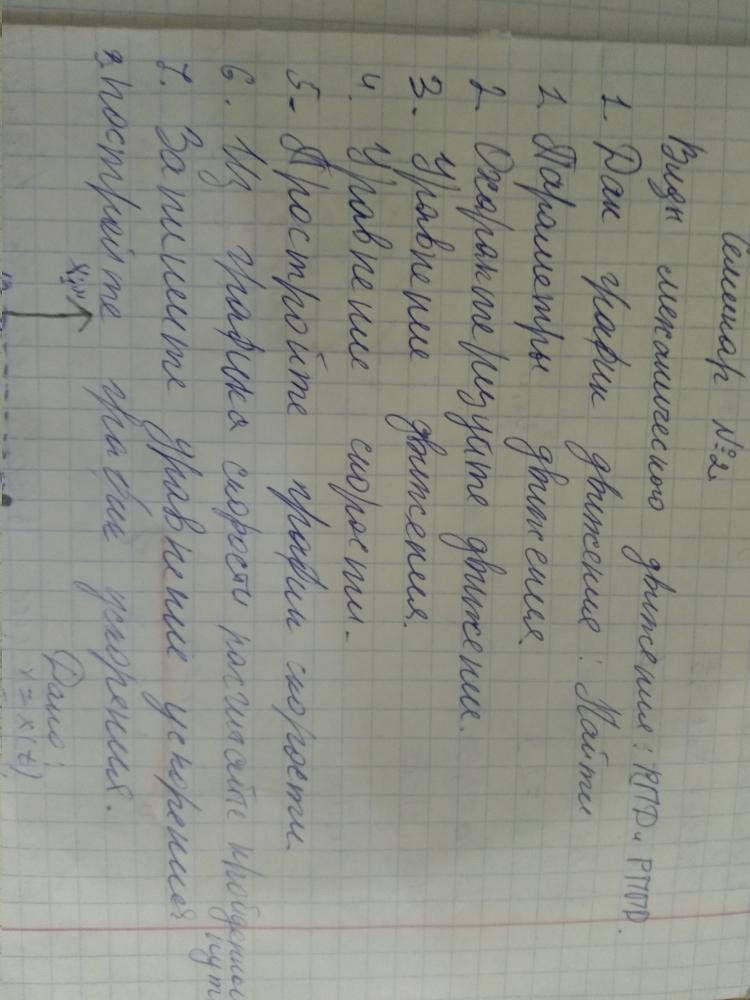 Семинар №2.
Виды механического движения: РПД и РППД.
1. Дан график движения: Найти
1. Параметры движения
2. Охарактеризуйте движение.
3. Уравнение движения.
4. Уравнение скорости.
5. Простройте график скорости.
6. Из графика скорости расчитайте пройденный пут
7. Запишите уравнение ускорения
Постройте график ускорения.
Дано:
x = x(t)